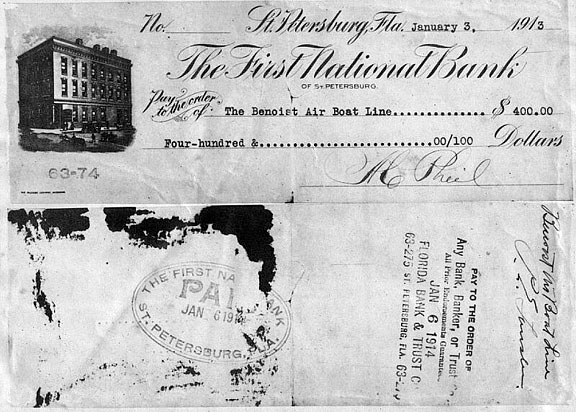 No. St. Petersburg, Fla. January 3, 1913
The First National Bank
OF ST. PETERSBURG.
Pay to the order of: The Benoist Air Boat Line.............. $ 400.00
Four-hundred &..............................00/100 Dollars
63-74
A C Pheil
THE FIRST NA BANK
PAI
JAN 6 191
ST. PETERSBURG, FLA.
PAY TO THE ORDER OF
Any Bank, Banker, or Trust
All Prior Endorsements Guarantee
JAN 6 1914
FLORIDA BANK & TRUST C
63-275 ST. PETERSBURG, FLA. 63-
Benoist Air Boat Line